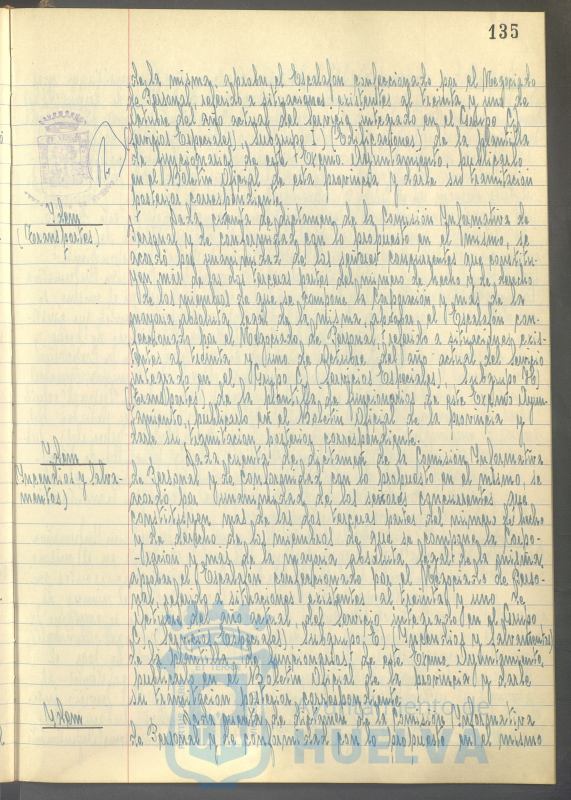 135
de la misma, aprobar el Escalafón confeccionado por el Negociado
de Personal, referido a situaciones existentes al treinta y uno de
Octubre del año actual del Servicio integrado en el Grupo C)
Servicios Especiales) Subgrupo I) (Edificaciones) de la plantilla
de funcionarios de este Excmo. Ayuntamiento, publicarlo
en el Boletín Oficial de esta provincia y darle su tramitación
posterior correspondiente.
Ydem
(Transportes)
Dada cuenta de dictamen de la Comisión Informativa de
Personal y de conformidad con lo propuesto en el mismo, se
acordó por unanimidad de los señores concurrentes que constitu-
yen más de las dos terceras partes del número de hecho y de derecho
de los miembros de que se compone la Corporación y más de la
mayoría absoluta legal de la misma, aprobar el Escalafón con-
feccionado por el Negociado de Personal referido a situaciones exis-
tentes al treinta y uno de Octubre del año actual del Servicio
integrado en el Grupo C) (Servicios Especiales) Subgrupo H)
(Transportes) de la plantilla de funcionarios de este Excmo Ayun-
tamiento, publicarlo en el Boletín Oficial de la provincia y
darle su tramitación posterior correspondiente.
Ydem
(Incendios y salva-
mentos)
Dada cuenta de dictamen de la Comisión Informativa
de Personal y de conformidad con lo propuesto en el mismo, se
acordó por unanimidad de los señores concurrentes que
constituyen mas de las dos terceras partes del número de hecho
y de derecho de los miembros de que se compone la Corpo-
ración y más de la mayoría absoluta legal de la misma,
aprobar el Escalafón confeccionado por el Negociado de Perso-
nal referido a situaciones existentes al treinta y uno de
Octubre del año actual del Servicio integrado en el Grupo
C) (Servicios Especiales) Subgrupo E) (Incendios y Salvamentos)
de la plantilla de funcionarios de este Excmo. Ayuntamiento,
publicarlo en el Boletín Oficial de la provincia y darle
su tramitación posterior correspondiente.
Ydem
Dada cuenta de dictamen de la Comisión Informativa
de Personal y de conformidad con lo propuesto en el mismo
Ayuntamiento de
HUELVA